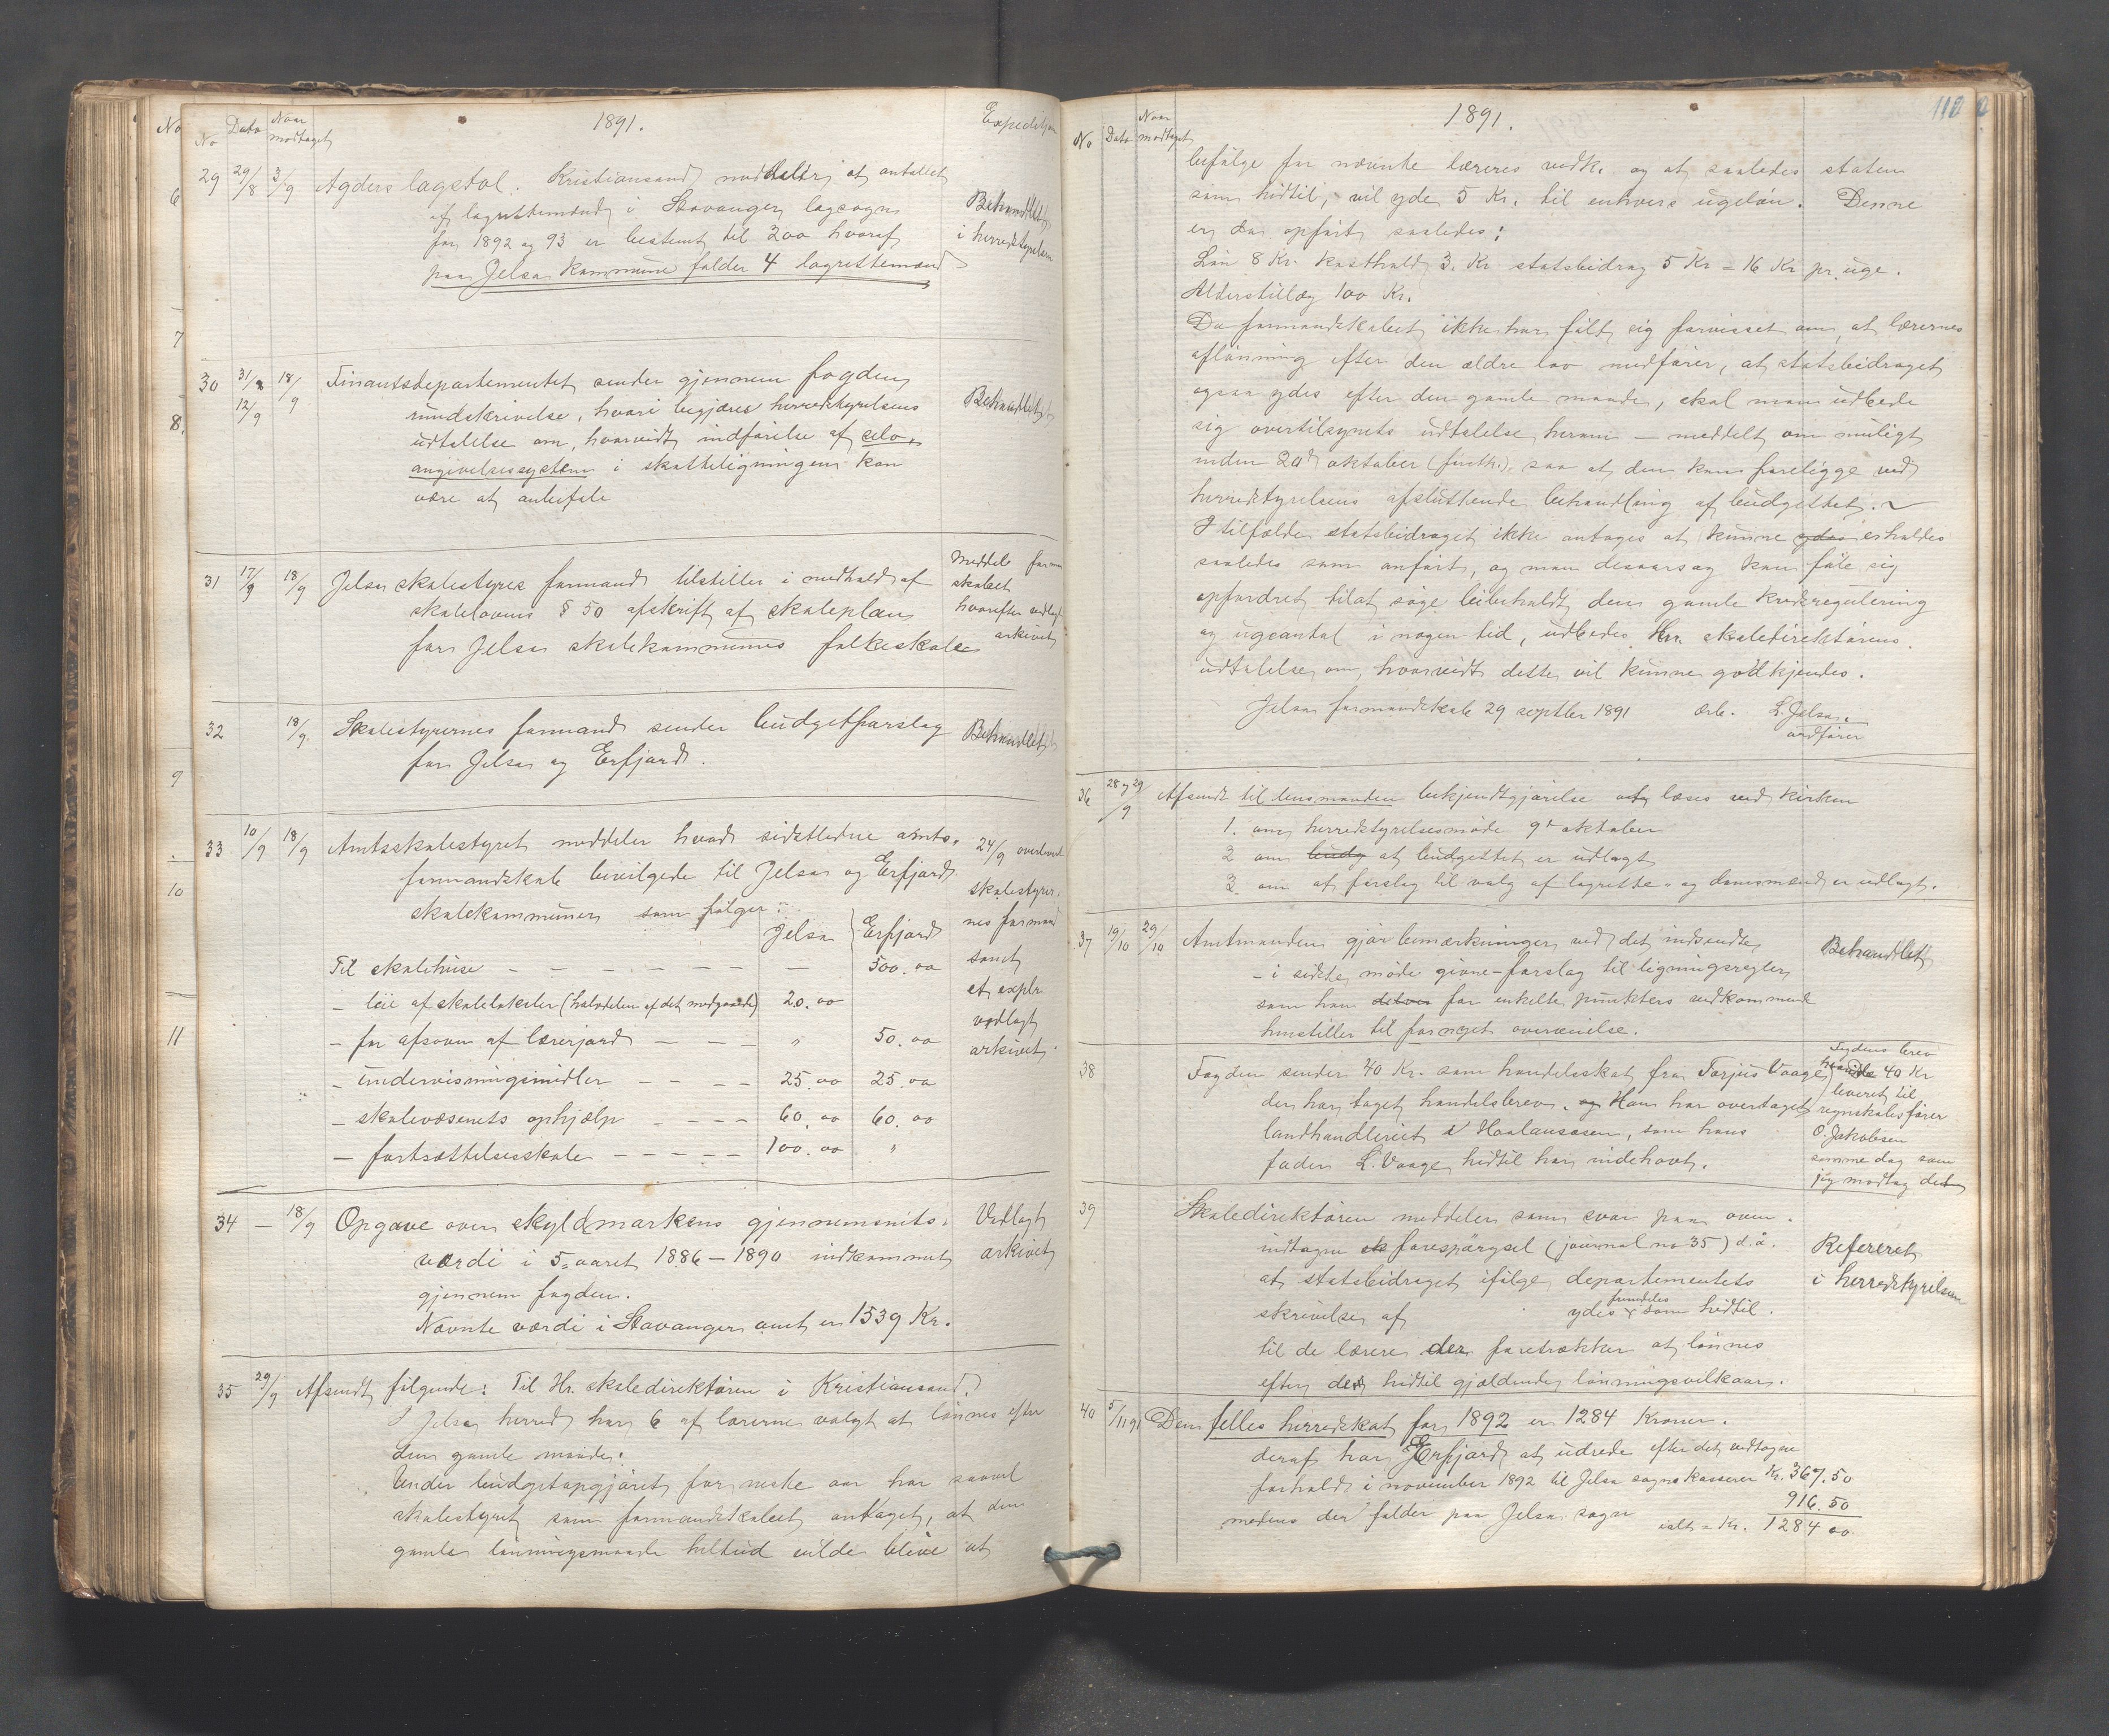 No
6
7
8.
9
10
11
No Dato Naar modtaget 1891. Expedition
29 29/8 3/9 Agders lagstol. Kristiansand meddeler at antallet
af lagrettemænd i Stavanger lagsogn
for 1892 og 93 er bestemt til 200 hvoraf
paa Jelsa kommune falder 4 lagrettemænd
Behandlet
i herredstyrelsen
30 31/8 12/9 18/9 Finantsdepartementet sender gjennem fogden
rundskrivelse, hvori begjæres herredstyrelsens
udtalelse om, hvorvidt indførelse af selv-
angivelsessystem i skatteligningen kan
være at anbefale
Behandlet
31 17/9 18/9 Jelsa skolestyres formand tilstiller i medhold af
skolelovens § 50 afskrift af skoleplan
for Jelsa skolekommunes folkeskole
Meddelt formand
skabet
hvorefter vedlagt
arkivet
32 18/9 Skolestyrernes formand sender budgetforslag
for Jelsa og Erfjord.
Behandlet
33 10/9 18/9 Amtsskolestyret meddeler hvad sidstledne amts-
formandskab bevilgede til Jelsa og Erfjord
skolekommuner som følger:
Jelsa Erfjord
Til skolehuse — — — — — — — 500.00
— leie af skolelokaler (halvdelen af det medgaaede) 20.00
— for afsavn af lærerjord — — — " 50.00
— undervisningsmidler — — — — 25.00 25.00
— skolevæsenets ophjælp — — — — 60.00 60.00
— fortsættelsesskole — — — — — 100.00 "
24/9 overleveret
skolestyrer-
nes formand
samt
et explr
vedlagt
arkivet.
34 — 18/9 Opgave over skyldmarkens gjennemsnits-
værdi i 5-aaret 1886 — 1890 indkommet
gjennem fogden.
Nævnte værdi i Stavanger amt er 1539 Kr.
Vedlagt
arkivet
35 29/9 Afsendt følgende: Til Hr. skoledirektøren i Kristiansand.
I Jelsa herred har 6 af lærerne valgt at lønnes efter
den gamle maade.
Under budgetopgjøret for neste aar har saavel
skolestyret som formandskabet antaget, at den
gamle lønningsmaade heltud vilde blive at
No Dato Naar modtaget 1891. 110
befølge for nævnte læreres vedk. og at saaledes staten
som hidtil, vil yde 5 Kr. til enhvers ugeløn. Denne
er da opført saaledes:
Løn 8 Kr. kosthold 3. Kr statsbidrag 5 Kr = 16 Kr pr uge.
Alderstillæg 100 Kr.
Da formandskabet ikke har følt sig forvisset om, at lærernes
aflønning efter den ældre lov medfører, at statsbidraget
ogsaa ydes efter den gamle maade, skal man udbede
sig overtilsynets udtalelse herom — meddelt om muligt
inden 20d oktober (førstk.), saa at den kan foreligge ved
herredstyrelsens afsluttende behandling af budgettet.
I tilfælde statsbidraget ikke antages at kunne ydes erholdes
saaledes som anført, og man desaarsag kan føle sig
opfordret til at søge bibeholdt den gamle kredsregulering
og ugeantal i nogen tid, udbedes Hr. skoledirektørens
udtalelse om, hvorvidt dette vil kunne godkjendes.
Jelsa formandskab 29 septber 1891 ærb. L. Jelsa
ordfører
36 28 og 29/9 Afsendt til lensmanden bekjendtgjørelse at læses ved kirken
1. om herredstyrelsesmøde 9de oktober
2 om budg at budgettet er udlagt
3. om at forslag til valg af lagrette- og domsmænd er udlagt.
37 19/10 29/10 Amtmanden gjør bemærkninger ved det indsendte
— i sidste møde givne — forslag til ligningsregler
som han for enkelte punkters vedkommende
henstiller til fornyet overveielse.
Behandlet
38 Fogden sender 40 Kr. som handelsskat fra Torjus Vaage
der har taget handelsbrev. og Han har overtaget
landhandleriet i Haalandsosen, som hans
fader L. Vaage hidtil har indehavt.
Fogdens brev
40 Kr
leveret til
regnskabsfører
O. Jakobsen
samme dag som
jeg modtog det
39 Skoledirektøren meddeler som svar paa oven-
indtagne forespørgsel (journal no 35) d.å.
at statsbidraget ifølge departementets
skrivelse af ydes fremdeles som hidtil.
til de lærere der foretrækker at lønnes
efter de hidtil gjældende lønningsvilkaar.
Refereret
i herredstyrelsen
40 5/11 91 Den felles herredskat for 1892 er 1284 Kroner.
deraf har Erfjord at udrede efter det vedtagne
forhold i november 1892 til Jelsa sognekasserer Kr. 367.50
medens der falder paa Jelsa sogn 916.50
ialt = Kr. 1284 00